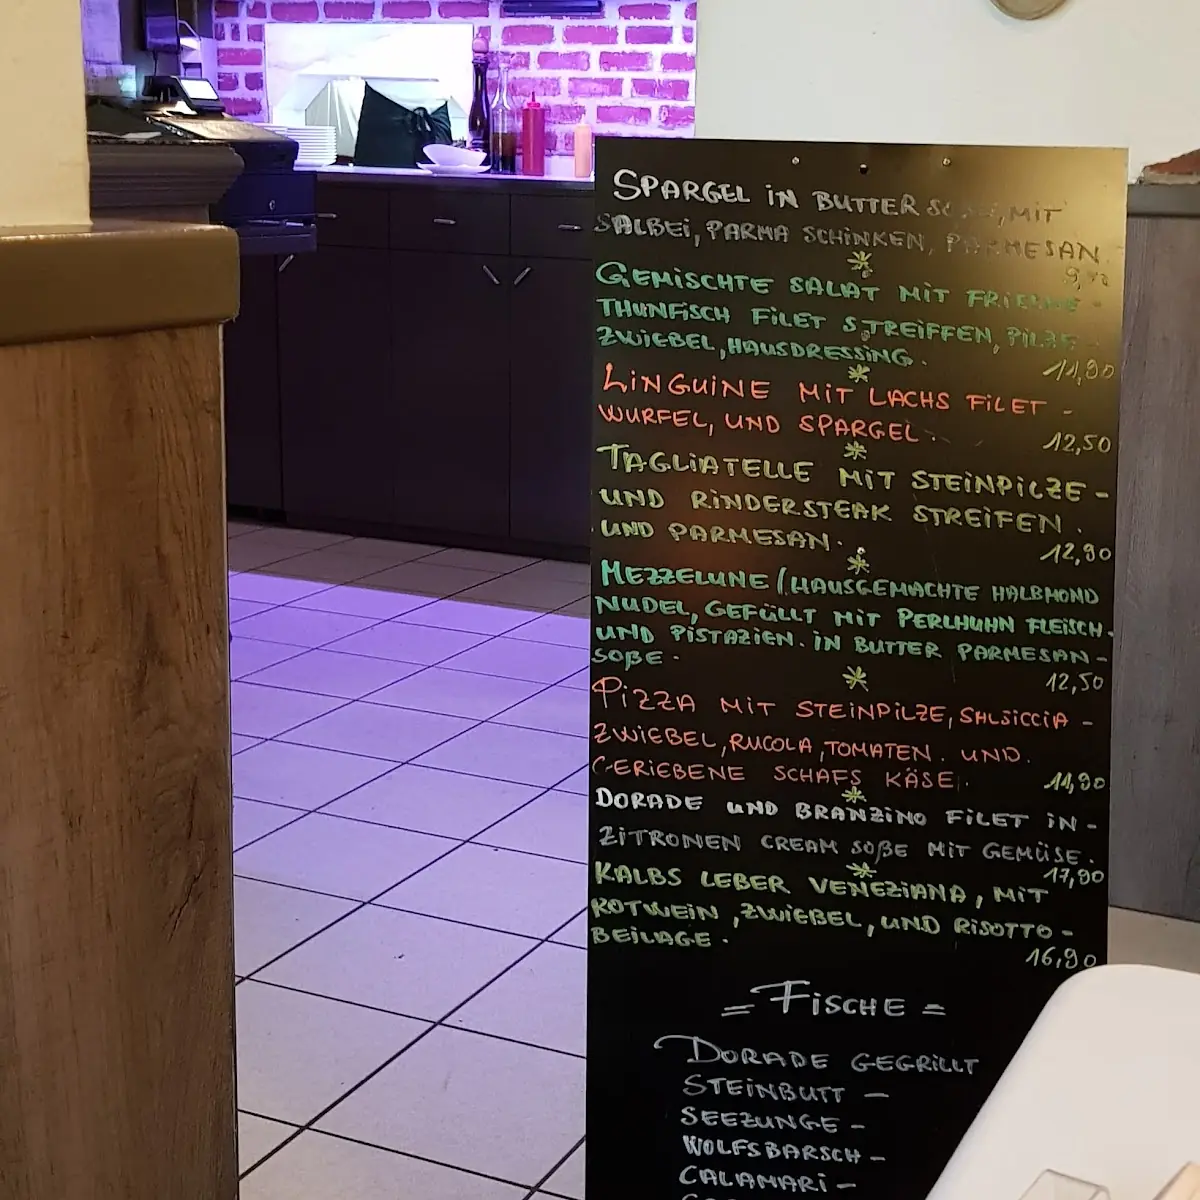 SPARGEL IN BUTTER MIT
SALBEI, PARMA SCHINKEN, PARMESAN
GEMISCHTE SALAT MIT
THUNFISCH FILET STREIFFEN, PILZE -
ZWIEBEL, HAUSDRESSING.
LINGUINE MIT LACHS FILET -
WURFEL, UND SPARGEL.
12,50
TAGLIATELLE MIT STEINPILZE -
UND RINDERSTEAK STREIFEN.
UND PARMESAN.
12,90
MEZZELUNE (HAUSGEMACHTE HALBMOND
NUDEL, GEFÜLLT MIT PERLHUHN FLEISCH.
UND PISTAZIEN. IN BUTTER PARMESAN -
SOßE.
12,50
PIZZA MIT STEINPILZE, SALSICCIA -
ZWIEBEL, RUCOLA, TOMATEN. UND.
GERIEBENE SCHAFS KÄSE.
DORADE UND BRANZINO FILET IN -
ZITRONEN CREAM SOßE MIT GEMÜSE.
17,90
KALBS LEBER VENEZIANA, MIT
ROTWEIN, ZWIEBEL, UND RISOTTO -
BEILAGE.
16,90
= FISCHE =
DORADE GEGRILLT
STEINBUTT -
SEEZUNGE -
WOLFSBARSCH -
CALAMARI -